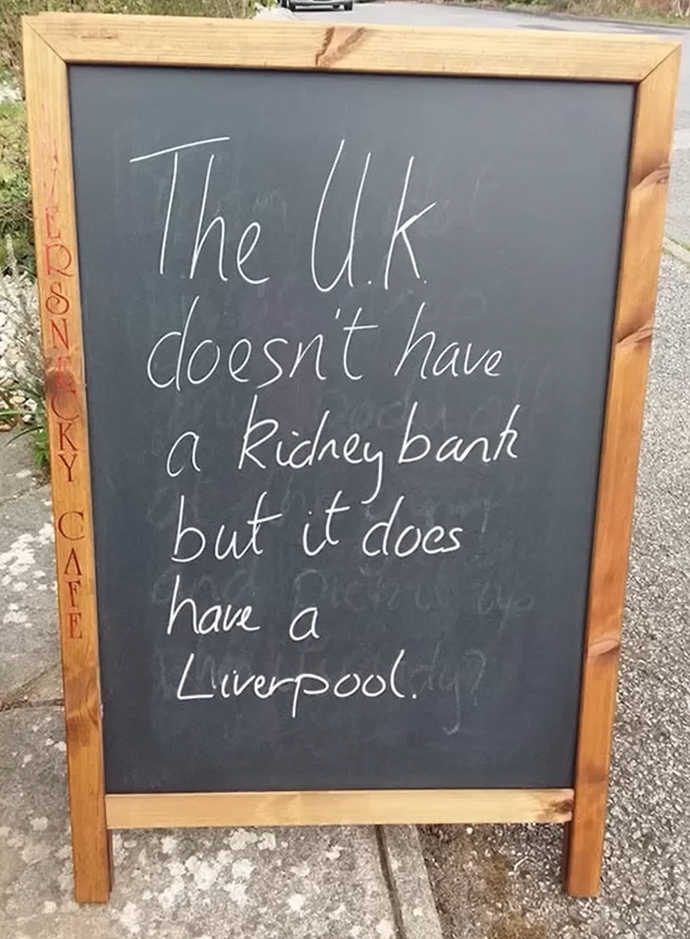 The U.K.
doesn't have
a kidney bank
but it does
have a
Liverpool.
CAFE